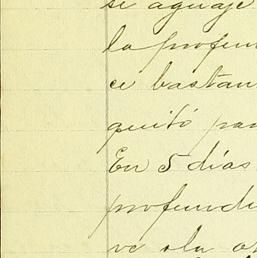 se aguaje
la profun
ce bastan
quitó par
En 5 días
profundi
ve ola